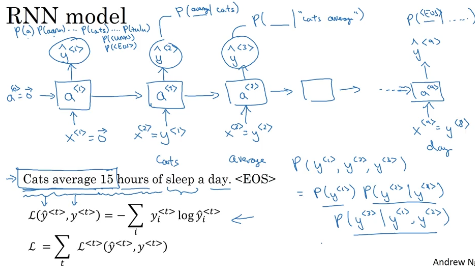 RNN model
P(a) P(aaron) ... P(cats) ... P(zulu)
P(<UNK>)
P(<EOS>)
P(average | cats)
P(__ | "cats average")
P(<EOS> | ...)
ŷ<1> ŷ<2> ŷ<3> ŷ<9>
a<0>=0 → a<1> → a<2> → a<3> → → ... → a<9>
x<1>=0 x<2>=y<1> x<3>=y<2> x<9>=y<8>
Cats average day
→ Cats average 15 hours of sleep a day. <EOS>
P(y<1>, y<2>, y<3>)
ℒ(ŷ<t>, y<t>) = −∑i yi<t> log ŷi<t> ←
= P(y<1>) P(y<2> | y<1>)
P(y<3> | y<1>, y<2>)
ℒ = ∑t ℒ<t>(ŷ<t>, y<t>)
Andrew Ng